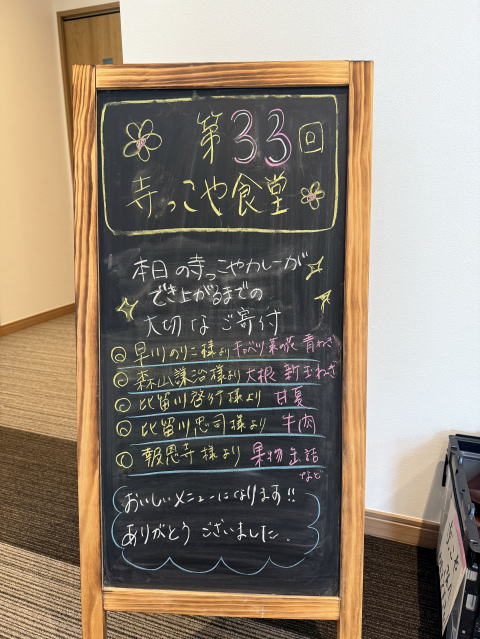 第33回
寺っこや食堂
本日の寺っこやカレーが
でき上がるまでの
大切なご寄付
◎早川のりこ様よりキャベツ 菜の花 青ねぎ
◎森山謙治様より大根 新玉ねぎ
◎比留川啓行様より 甘夏
◎比留川忠司様より 牛肉
◎報恩寺様より 果物 缶詰
など
おいしいメニューになります!!
ありがとうございました.